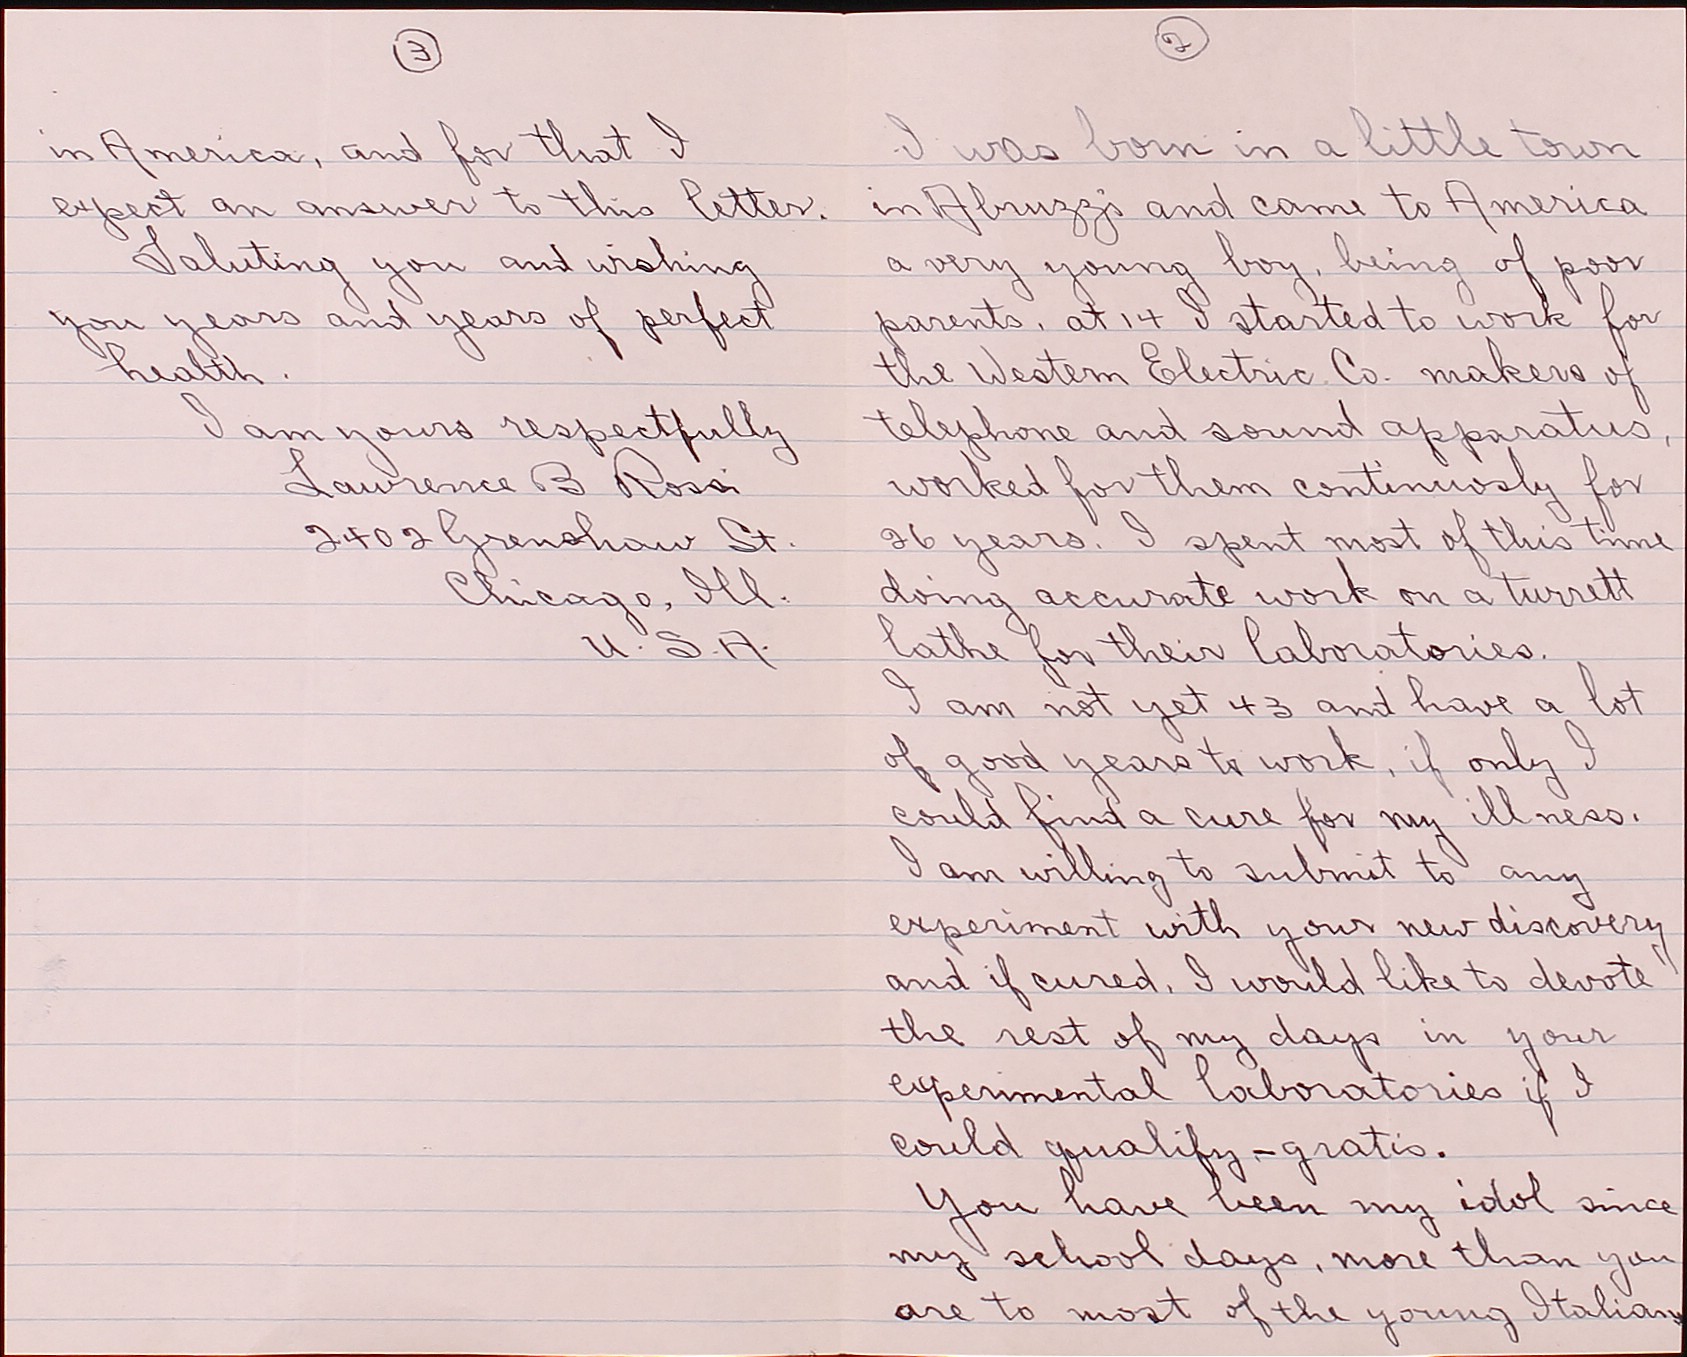 2
I was born in a little town
in Abruzzi and came to America
a very young boy, being of poor
parents, at 14 I started to work for
the Western Electric Co. makers of
telephone and sound apparatus,
worked for them continuosly for
26 years. I spent most of this time
doing accurate work on a turrett
lathe for their laboratories.
I am not yet 43 and have a lot
of good years to work, if only I
could find a cure for my illness.
I am willing to submit to any
experiment with your new discovery
and if cured, I would like to devote
the rest of my days in your
experimental laboratories if I
could qualify - gratis.
You have been my idol since
my school days, more than you
are to most of the young Italians
3
in America, and for that I
expect an answer to this letter.
Saluting you and wishing
you years and years of perfect
health.
I am yours respectfully
Lawrence B Rossi
2402 Grenshaw St.
Chicago, Ill.
U. S. A.